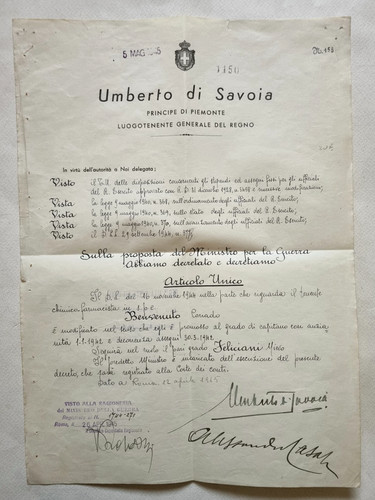 5 MAG
1150
Umberto di Savoia
PRINCIPE DI PIEMONTE
LUOGOTENENTE GENERALE DEL REGNO
In virtù dell'autorità a Noi delegata;
Visto il T.U. delle disposizioni concernenti gli stipendi ed assegni fissi per gli ufficiali
del R. Esercito approvato con R.D. 31 dicembre 1928, n. 3458 e successive modificazioni;
Vista la legge 9 maggio 1940, n. 368, sull'ordinamento degli ufficiali del R. Esercito;
Vista la legge 9 maggio 1940, n. 369, sullo stato degli ufficiali del R. Esercito;
Vista la legge 9 maggio 1940, n. 370, sull'avanzamento degli ufficiali del R. Esercito;
Visto il D.L.L. 29 settembre 1944, n.
Sulla proposta del Ministro per la Guerra
Abbiamo decretato e decretiamo
Articolo Unico
Il D.L. del 16 novembre 1944 nella parte che riguarda il tenente
chimico-farmacista in s.p.e.
Benvenuto Corrado
è modificato nel senso che egli è promosso al grado di capitano con anzia-
nità 1.1.1942 e decorrenza assegni 30.3.1942.
Seguirà nel ruolo il pari grado Felician Mario
Il predetto Ministro è incaricato dell'esecuzione del presente
decreto, che sarà registrato alla Corte dei conti.
Dato a Roma 12 aprile 1945
VISTO ALLA RAGIONERIA
Umberto di Savoia
Alessandro Casati